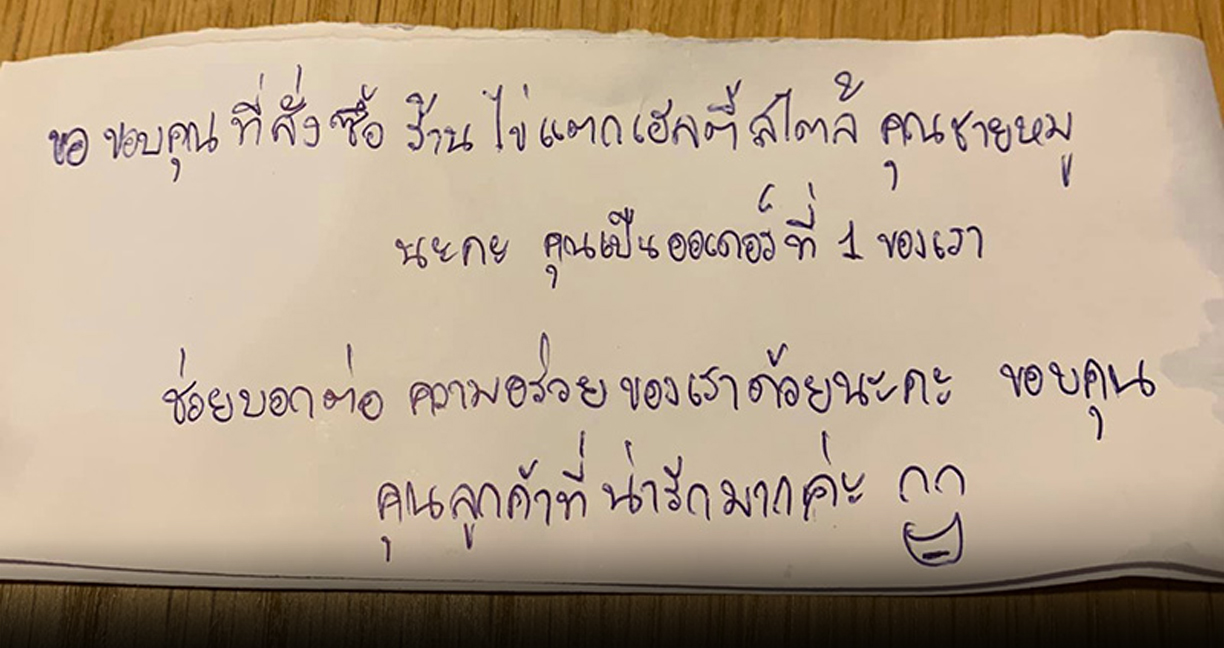 ขอ ขอบคุณ ที่สั่งซื้อ ร้าน ไข่แตกเฮลตี้ สไตล์ คุณชายหมู
นะคะ คุณเป็นออเดอร์ที่ 1 ของเรา
ช่วยบอกต่อ ความอร่อยของเราด้วยนะคะ ขอบคุณ
คุณลูกค้าที่น่ารักมากค่ะ